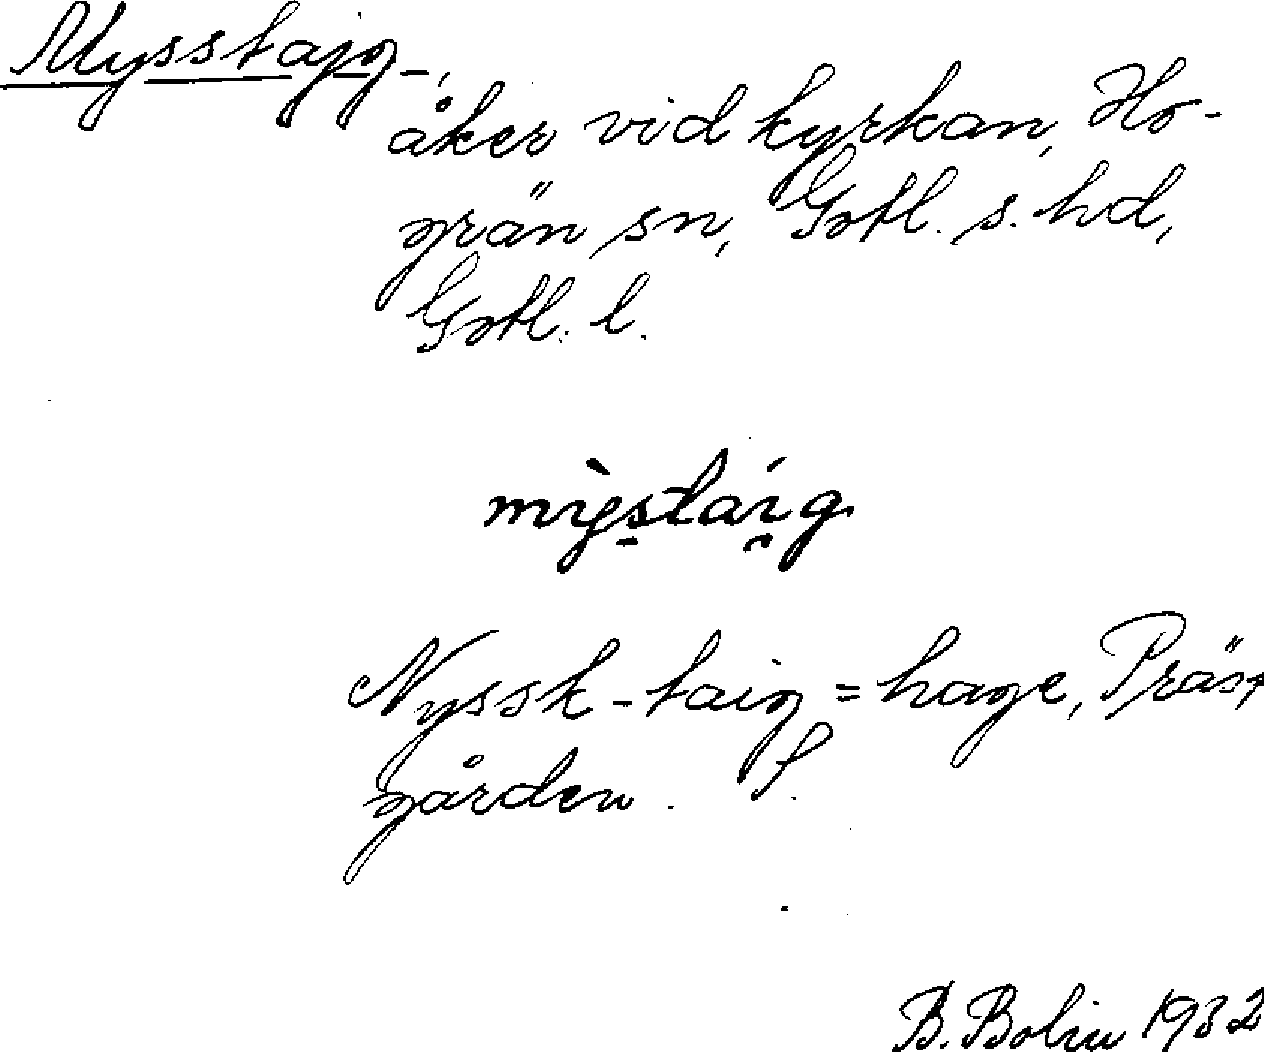 Mysstajg-,
åker vid kyrkan, Ho-
grän sn, Gotl. s. hd,
Gotl. l.
mỳstai̯g.
Nyssk-taig = hage, Präst
gården. f.
B. Bolin 1932